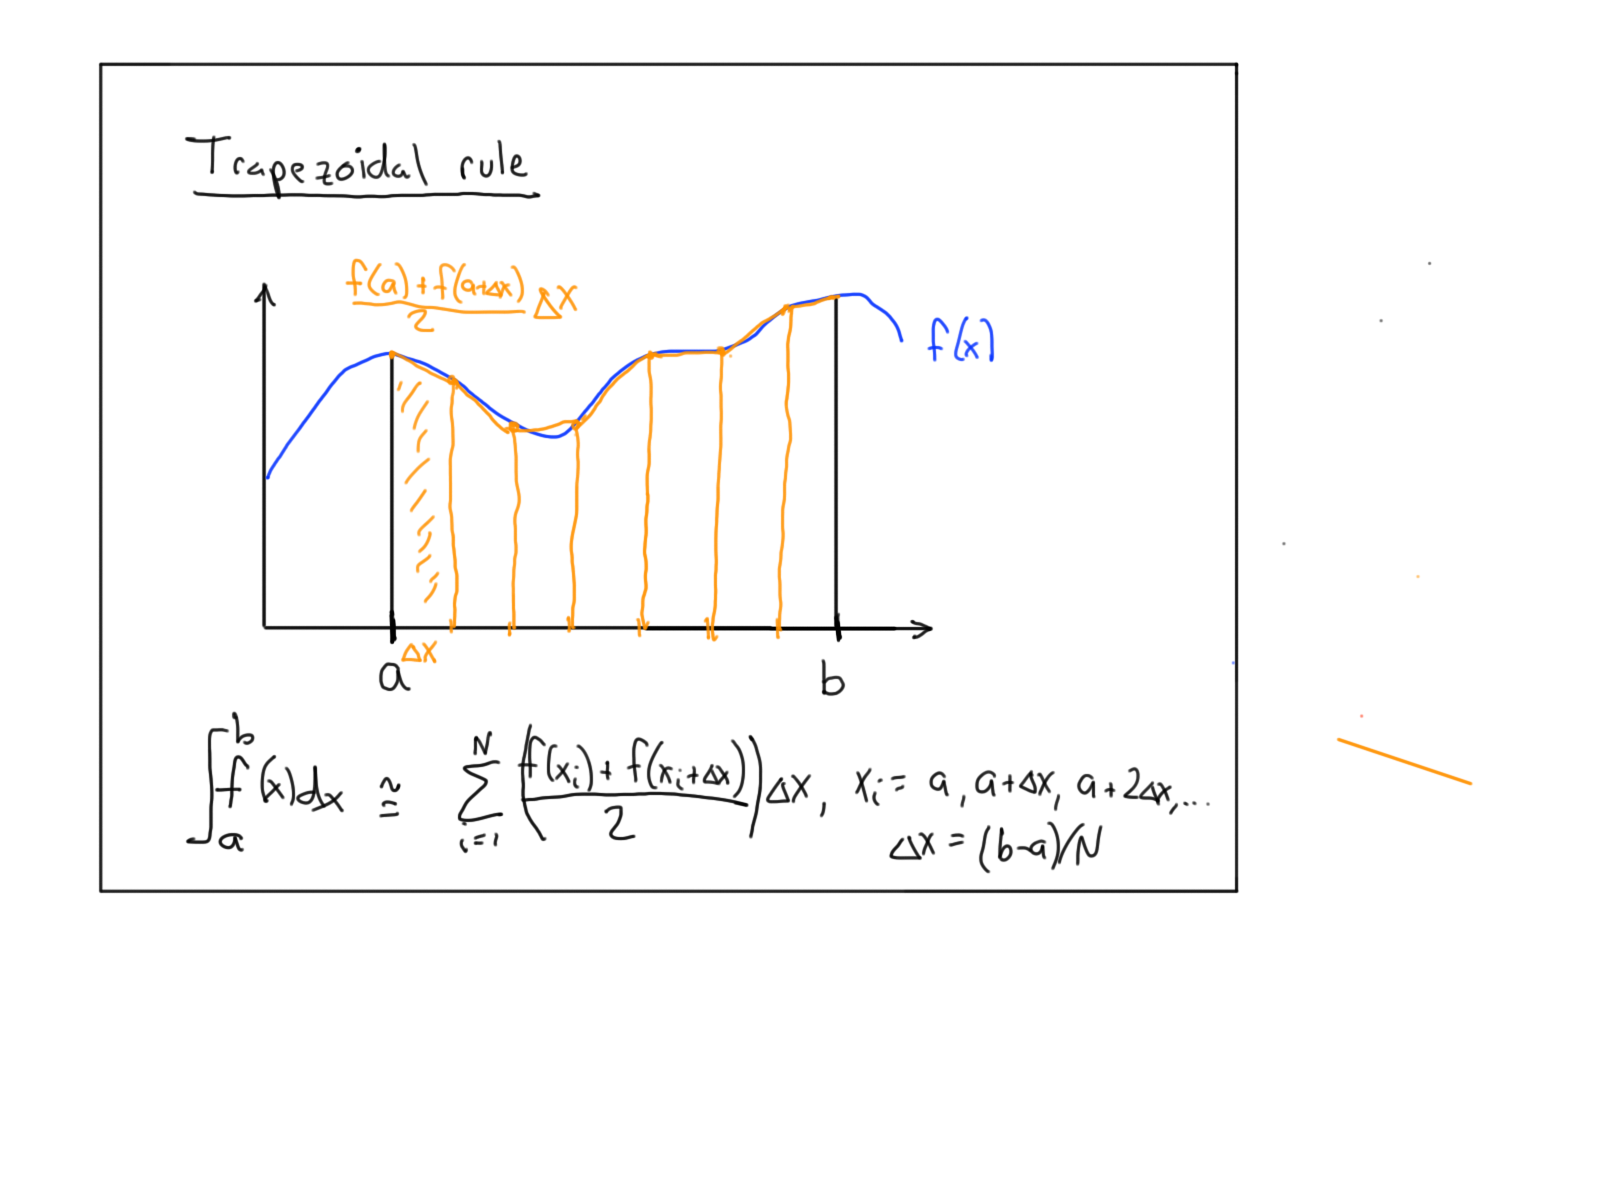 Trapezoidal rule
(f(a) + f(a+Δx))/2 Δx
f(x)
Δx
a b
∫_a^b f(x)dx ≅ ∑_{i=1}^N ((f(xᵢ) + f(xᵢ+Δx))/2) Δx, xᵢ = a, a+Δx, a+2Δx,...
Δx = (b-a)/N